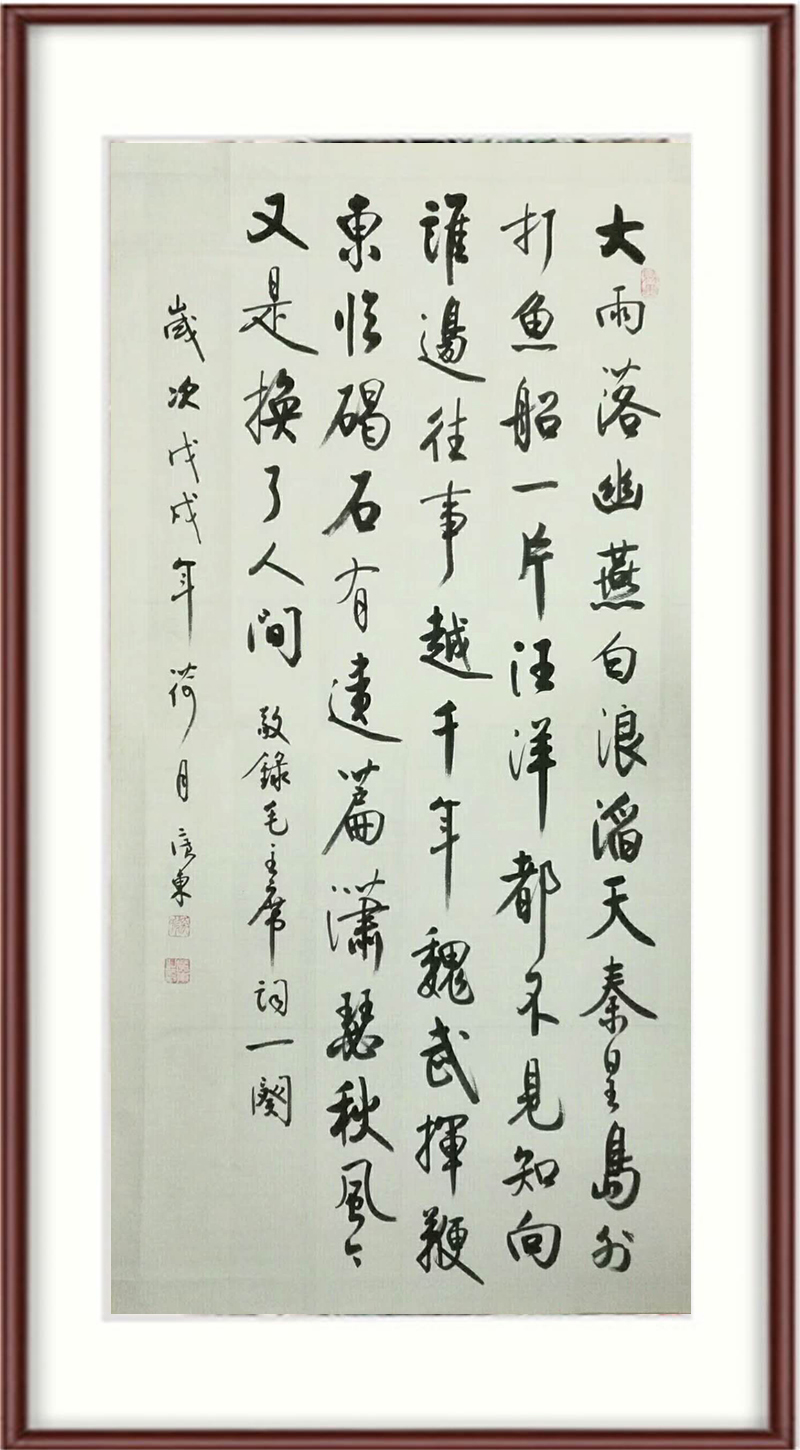 大雨落幽燕白浪滔天秦皇島外
打魚船一片汪洋都不見知向
誰邊往事越千年魏武揮鞭
東临碣石有遗篇瀟瑟秋風今
又是換了人间 敬錄毛主席词一闋
歲次戊戌年荷月 東